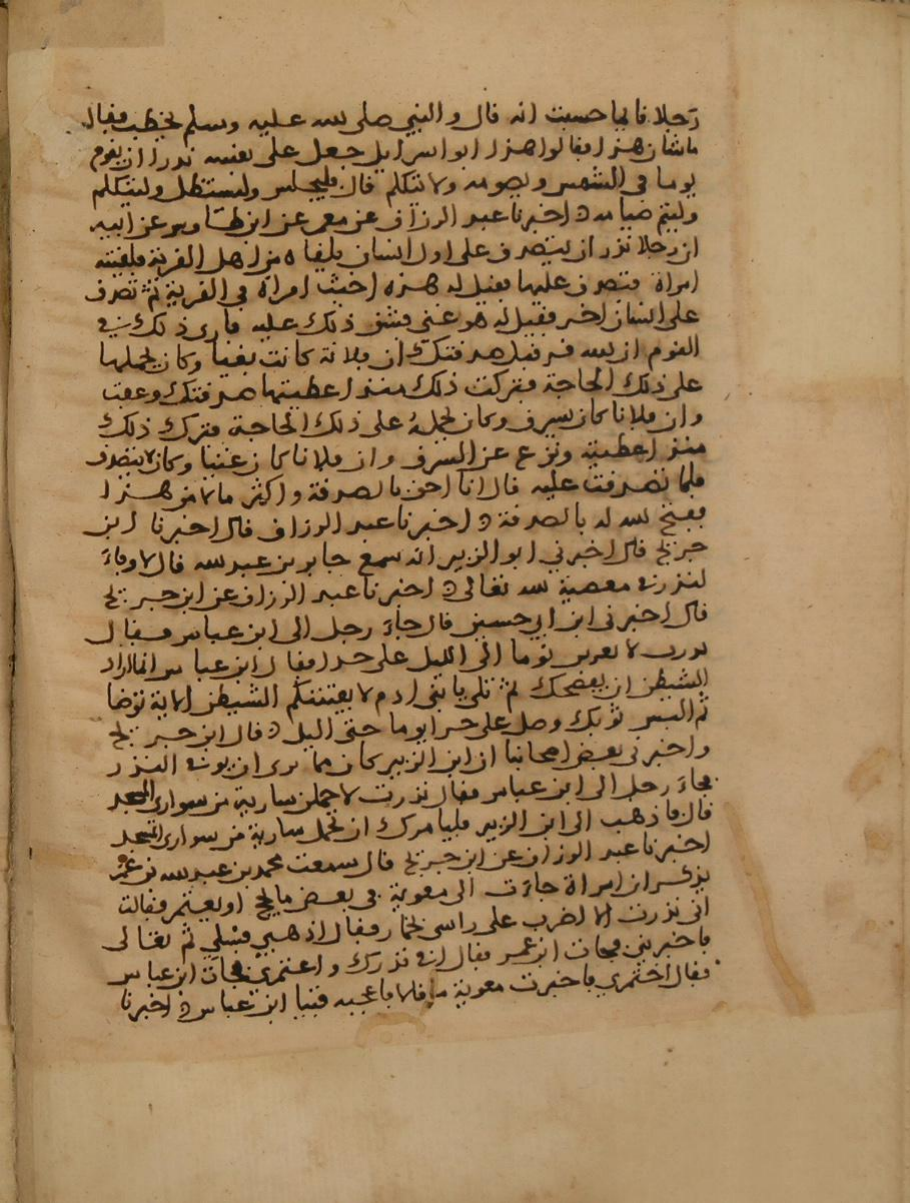 رجلا قائما حسبت انه قال والنبي صلى الله عليه وسلم يخطب فقال
ما شان هذا فقالوا هذا ابو اسرايل جعل على نفسه نذرا ان يقوم
يوما في الشمس ويصومه ولا يتكلم قال فليجلس وليستظل وليتكلم
وليتم صيامه اخبرنا عبد الرزاق عن معمر عن ابن طاوس عن ابيه
ان رجلا نذر ان يتصدق على اول انسان يلقاه من اهل القرية فلقيته
امراة فتصدق عليها فقيل له هذه اخبث امراة في القرية ثم تصدق
على انسان اخر فقيل له هو غني فشق ذلك عليه فارى ذلك في
النوم ان الله قد قبل صدقتك ان فلانة كانت بغيا وكان يحملها
على ذلك الحاجة فتركت ذلك منذ اعطيتها صدقتك وعفت
وان فلانا كان يسرق وكان يحمله على ذلك الحاجة فترك ذلك
منذ اعطيته ونزع عن السرق وان فلانا كان غنيا وكان لا يتصدق
فلما تصدقت عليه قال انا احق بالصدقة واكثر مالا من هذا
ففتح الله له بالصدقة اخبرنا عبد الرزاق قال اخبرنا ابن
جريج قال اخبرني ابو الزبير انه سمع جابر بن عبد الله قال لا وفاء
لنذر في معصية الله تعالى اخبرنا عبد الرزاق عن ابن جريج
قال اخبرني ابن ابي حسين قال جاء رجل الى ابن عباس فقال
نذرت لا يوما الى الليل على حرا فقال ابن عباس انما اراد
الشيطن ان يفضحك ثم تلى يا بني ادم لا يفتننكم الشيطن الاية توضا
ثم البس ثوبك وصل على حرا يوما حتى الليل قال ابن جريج
واخبرني بعض اصحابنا ان ابن الزبير كان مما يرى ان يوفى النذر
فجاء رجل الى ابن عباس فقال نذرت لاحملن سارية من سواري المسجد
قال فاذهب الى ابن الزبير فليامرك ان تحمل سارية من سواري المسجد
اخبرنا عبد الرزاق عن ابن جريج قال سمعت محمد بن عبد الله بن عمر
يذكر ان امراة جاءت الى معوية في بعض ما يحج او يعتمر فقالت
اني نذرت الا اضرب على راسي بخمار فقال اذهبي فسلي ثم تعالي
فاخبريني فجات ابن عمر فقال اوفي نذرك واعتمري فجات ابن عباس
فقال اختمري فاخبرت معوية ما قالا فاعجبه فتيا ابن عباس اخبرنا